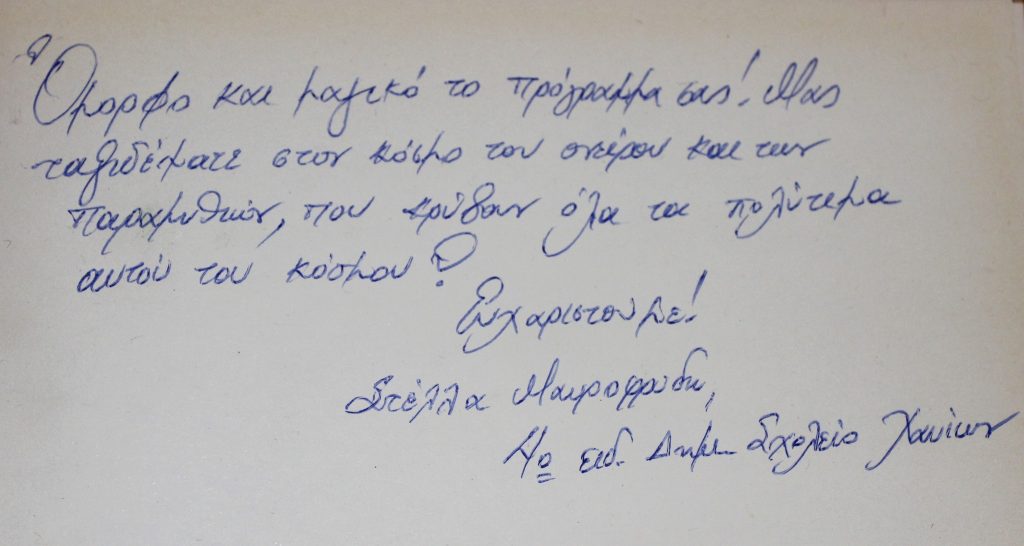 Όμορφο και μαγικό το πρόγραμμα σας! Μας
ταξιδέψατε στον κόσμο του ονείρου και των
παραμυθιών, που κρύβουν όλα τα πολύτιμα
αυτού του κόσμου!
Ευχαριστούμε!
Στέλλα Μαυροφρύδη,
4ο ειδ. Δημ. Σχολείο Χανίων